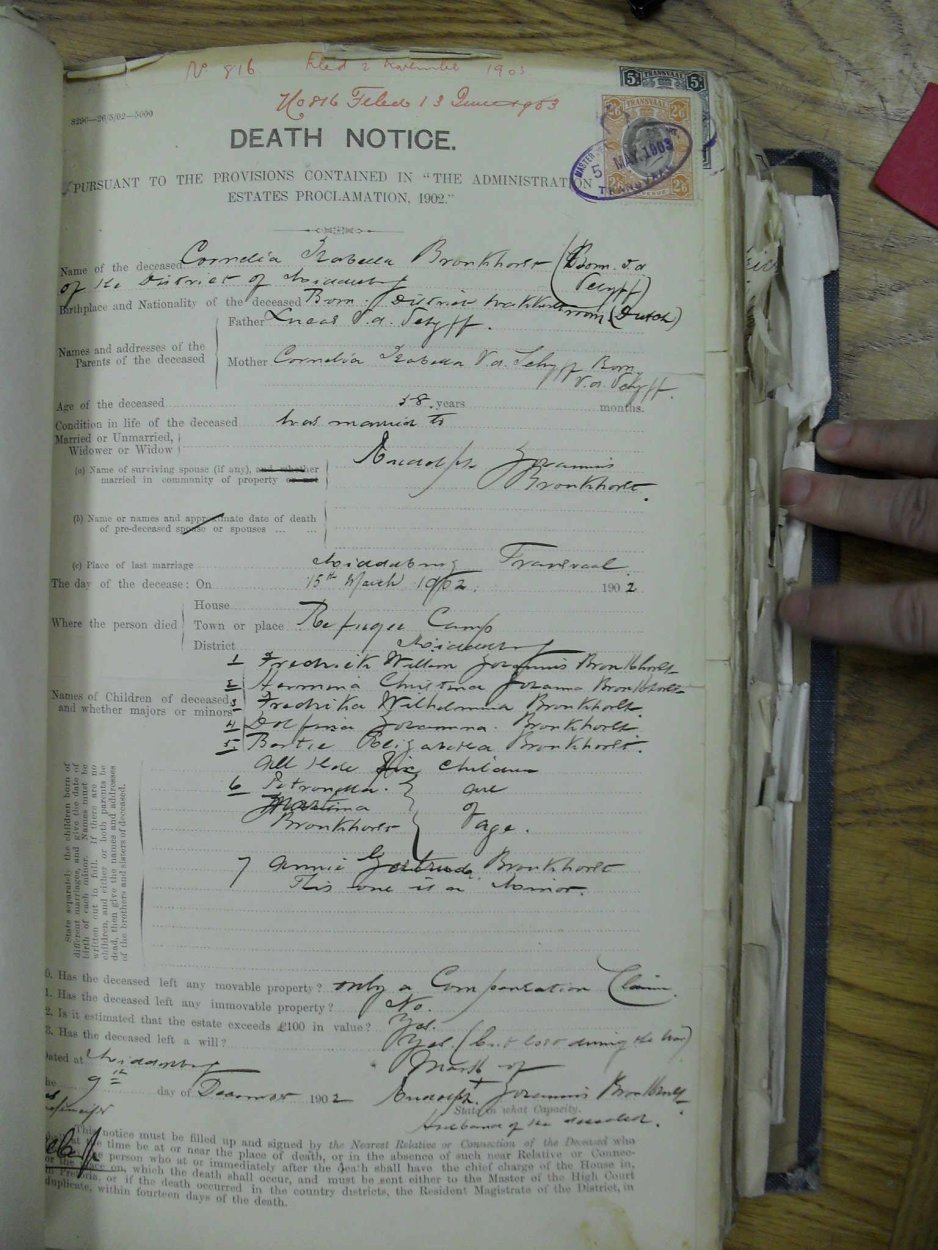 No 816 Filed 2 November 1903
No 816 Filed 13 June 1903
5/- TRANSVAAL 5/-
2/6 TRANSVAAL 2/6
5 MAY. 1903
TRANSVAAL
2/6 2/6
8290—26/5/02—5000
DEATH NOTICE.
PURSUANT TO THE PROVISIONS CONTAINED IN "THE ADMINISTRATION
ESTATES PROCLAMATION, 1902."
Name of the deceased Cornelia Izabella Bronkhorst (Born v.d
of the District of Middelburg
Birthplace and Nationality of the deceased Born District (Dutch)
Names and addresses of the Parents of the deceased
Father Lucas v.d.
Mother Cornelia Izabella v.d. Born
v.d.
Age of the deceased 58 years months.
Condition in life of the deceased was married to
Married or Unmarried,
Widower or Widow
(a) Name of surviving spouse (if any), and whether
married in community of property or not
Rudolph Johannis
Bronkhorst.
(b) Name or names and approximate date of death
of pre-deceased spouse or spouses ... ...
(c) Place of last marriage Middelburg Transvaal
The day of the decease: On 15th March 1902. 1902
Where the person died
House
Town or place Refugee Camp
District Middelburg
Names of Children of deceased
and whether majors or minors
1 Fredrick Willem Johannis Bronkhorst
2 Hermina Christina Johanna Bronkhorst
3 Fredrika Wilhelmina Bronkhorst
4 Dolfina Johanna Bronkhorst
5 Bertie Elizabetha Bronkhorst.
All these six children
6 Petronella are
Martima of
Bronkhorst age.
7 Annie Gertruda Bronkhorst
This one is a minor.
State separately the children born of
different marriages, and give the date of
birth of each minor. Names must be
written out in full. If there are no
children, and either or both parents be
dead, then give the names and addresses
of the brothers and sisters of deceased.
0. Has the deceased left any movable property? only a Compensation Claim.
1. Has the deceased left any immovable property? No.
2. Is it estimated that the estate exceeds £100 in value? Yes.
3. Has the deceased left a will? Yes. (but lost during the war)
Dated at Middelburg Mark of
the 9th day of December 1902 Rudolph + Johannis Bronkhorst
State in what Capacity.
Husband of the deceased.
This notice must be filled up and signed by the Nearest Relative or Connection of the Deceased who
at the time be at or near the place of death, or in the absence of such near Relative or Connec-
the person who at or immediately after the death shall have the chief charge of the House in,
or the place on, which the death shall occur, and must be sent either to the Master of the High Court
in Pretoria, or if the death occurred in the country districts, the Resident Magistrate of the District, in
duplicate, within fourteen days of the death.